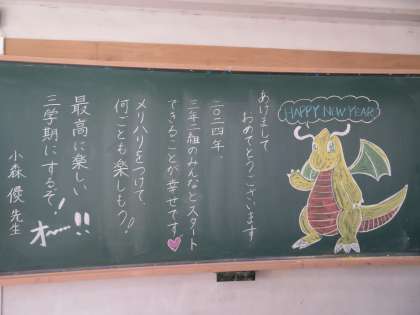 HAPPY NEW YEAR
あけまして
おめでとうございます
二〇二四年、
三年二組のみんなとスタート
できることが幸せです
メリハリをつけて、
何ごとも楽しもう!!
最高に楽しい
三学期にするぞ!
オー!!
小森 俊 先生